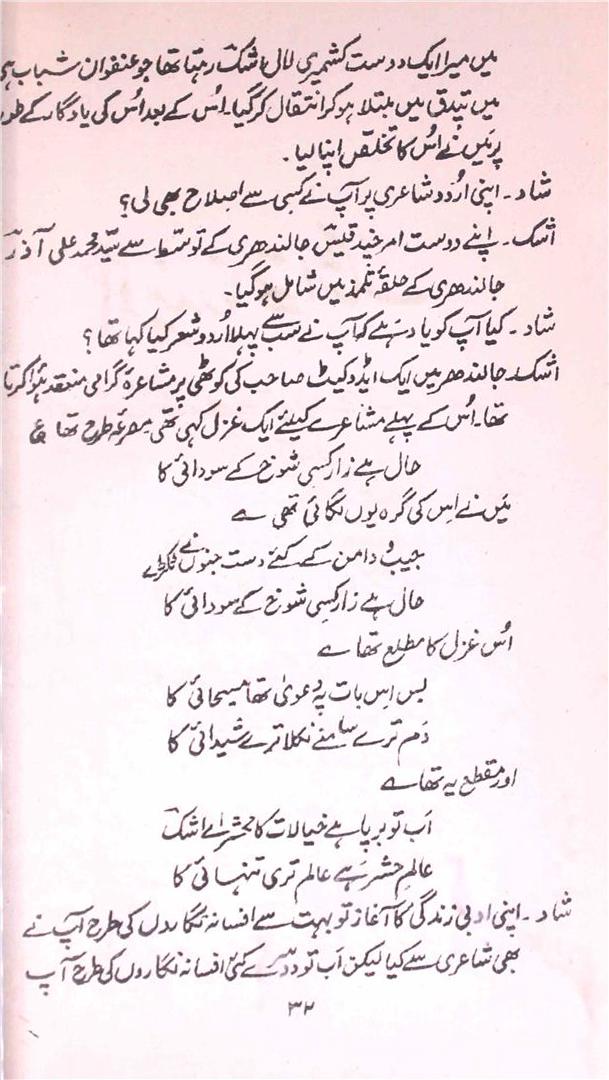 میں میرا ایک دوست کشمیری لال اشکؔ رہتا تھا جو عنفوان شباب ہی
میں تپدق میں مبتلا ہو کر انتقال کر گیا۔ اُس کے بعد اُس کی یادگار کے طور
پر مَیں نے اُس کا تخلّص اپنا لیا۔
شاد۔ اپنی اُردو شاعری پر آپ نے کسی سے اصلاح بھی لی؟
اشک۔ اپنے دوست امر چند قیسؔ جالندھری کے توسّط سے سیّد محمد علی آذرؔ
جالندھری کے حلقۂ تلمذ میں شامل ہو گیا۔
شاد۔ کیا آپ کو یاد ہے کہ آپ نے سب سے پہلا اُردو شعر کیا کہا تھا؟
اشک۔ جالندھر میں ایک ایڈوکیٹ صاحب کی کوٹھی پر مشاعرۂ گرامی منعقد ہؤا کرتا
تھا۔ اُس کے پہلے مشاعرے کیلئے ایک غزل کہی تھی مصرعۂ طرح تھا ع
حال ہے زار کسی شوخ کے سودائی کا
مَیں نے اِس کی گرہ یوں لگائی تھی ے
جیب و دامن کے کئے دست جنوں نے ٹکڑے
حال ہے زار کسی شوخ کے سودائی کا
اُس غزل کا مطلع تھا ے
بس اِس بات پہ دعویٰ تھا مسیحائی کا
دَم ترے سامنے نکلا ترے شیدائی کا
اور مقطع یہ تھا ے
اَب تو برپا ہے خیالات کا محشر اے اشکؔ
عالمِ حشر ہے عالم تری تنہائی کا
شاد۔ اپنی ادبی زندگی کا آغاز تو بہت سے افسانہ نگاروں کی طرح آپ نے
بھی شاعری سے کیا لیکن اَب تو دوسرے کئی افسانہ نگاروں کی طرح آپ
۳۲